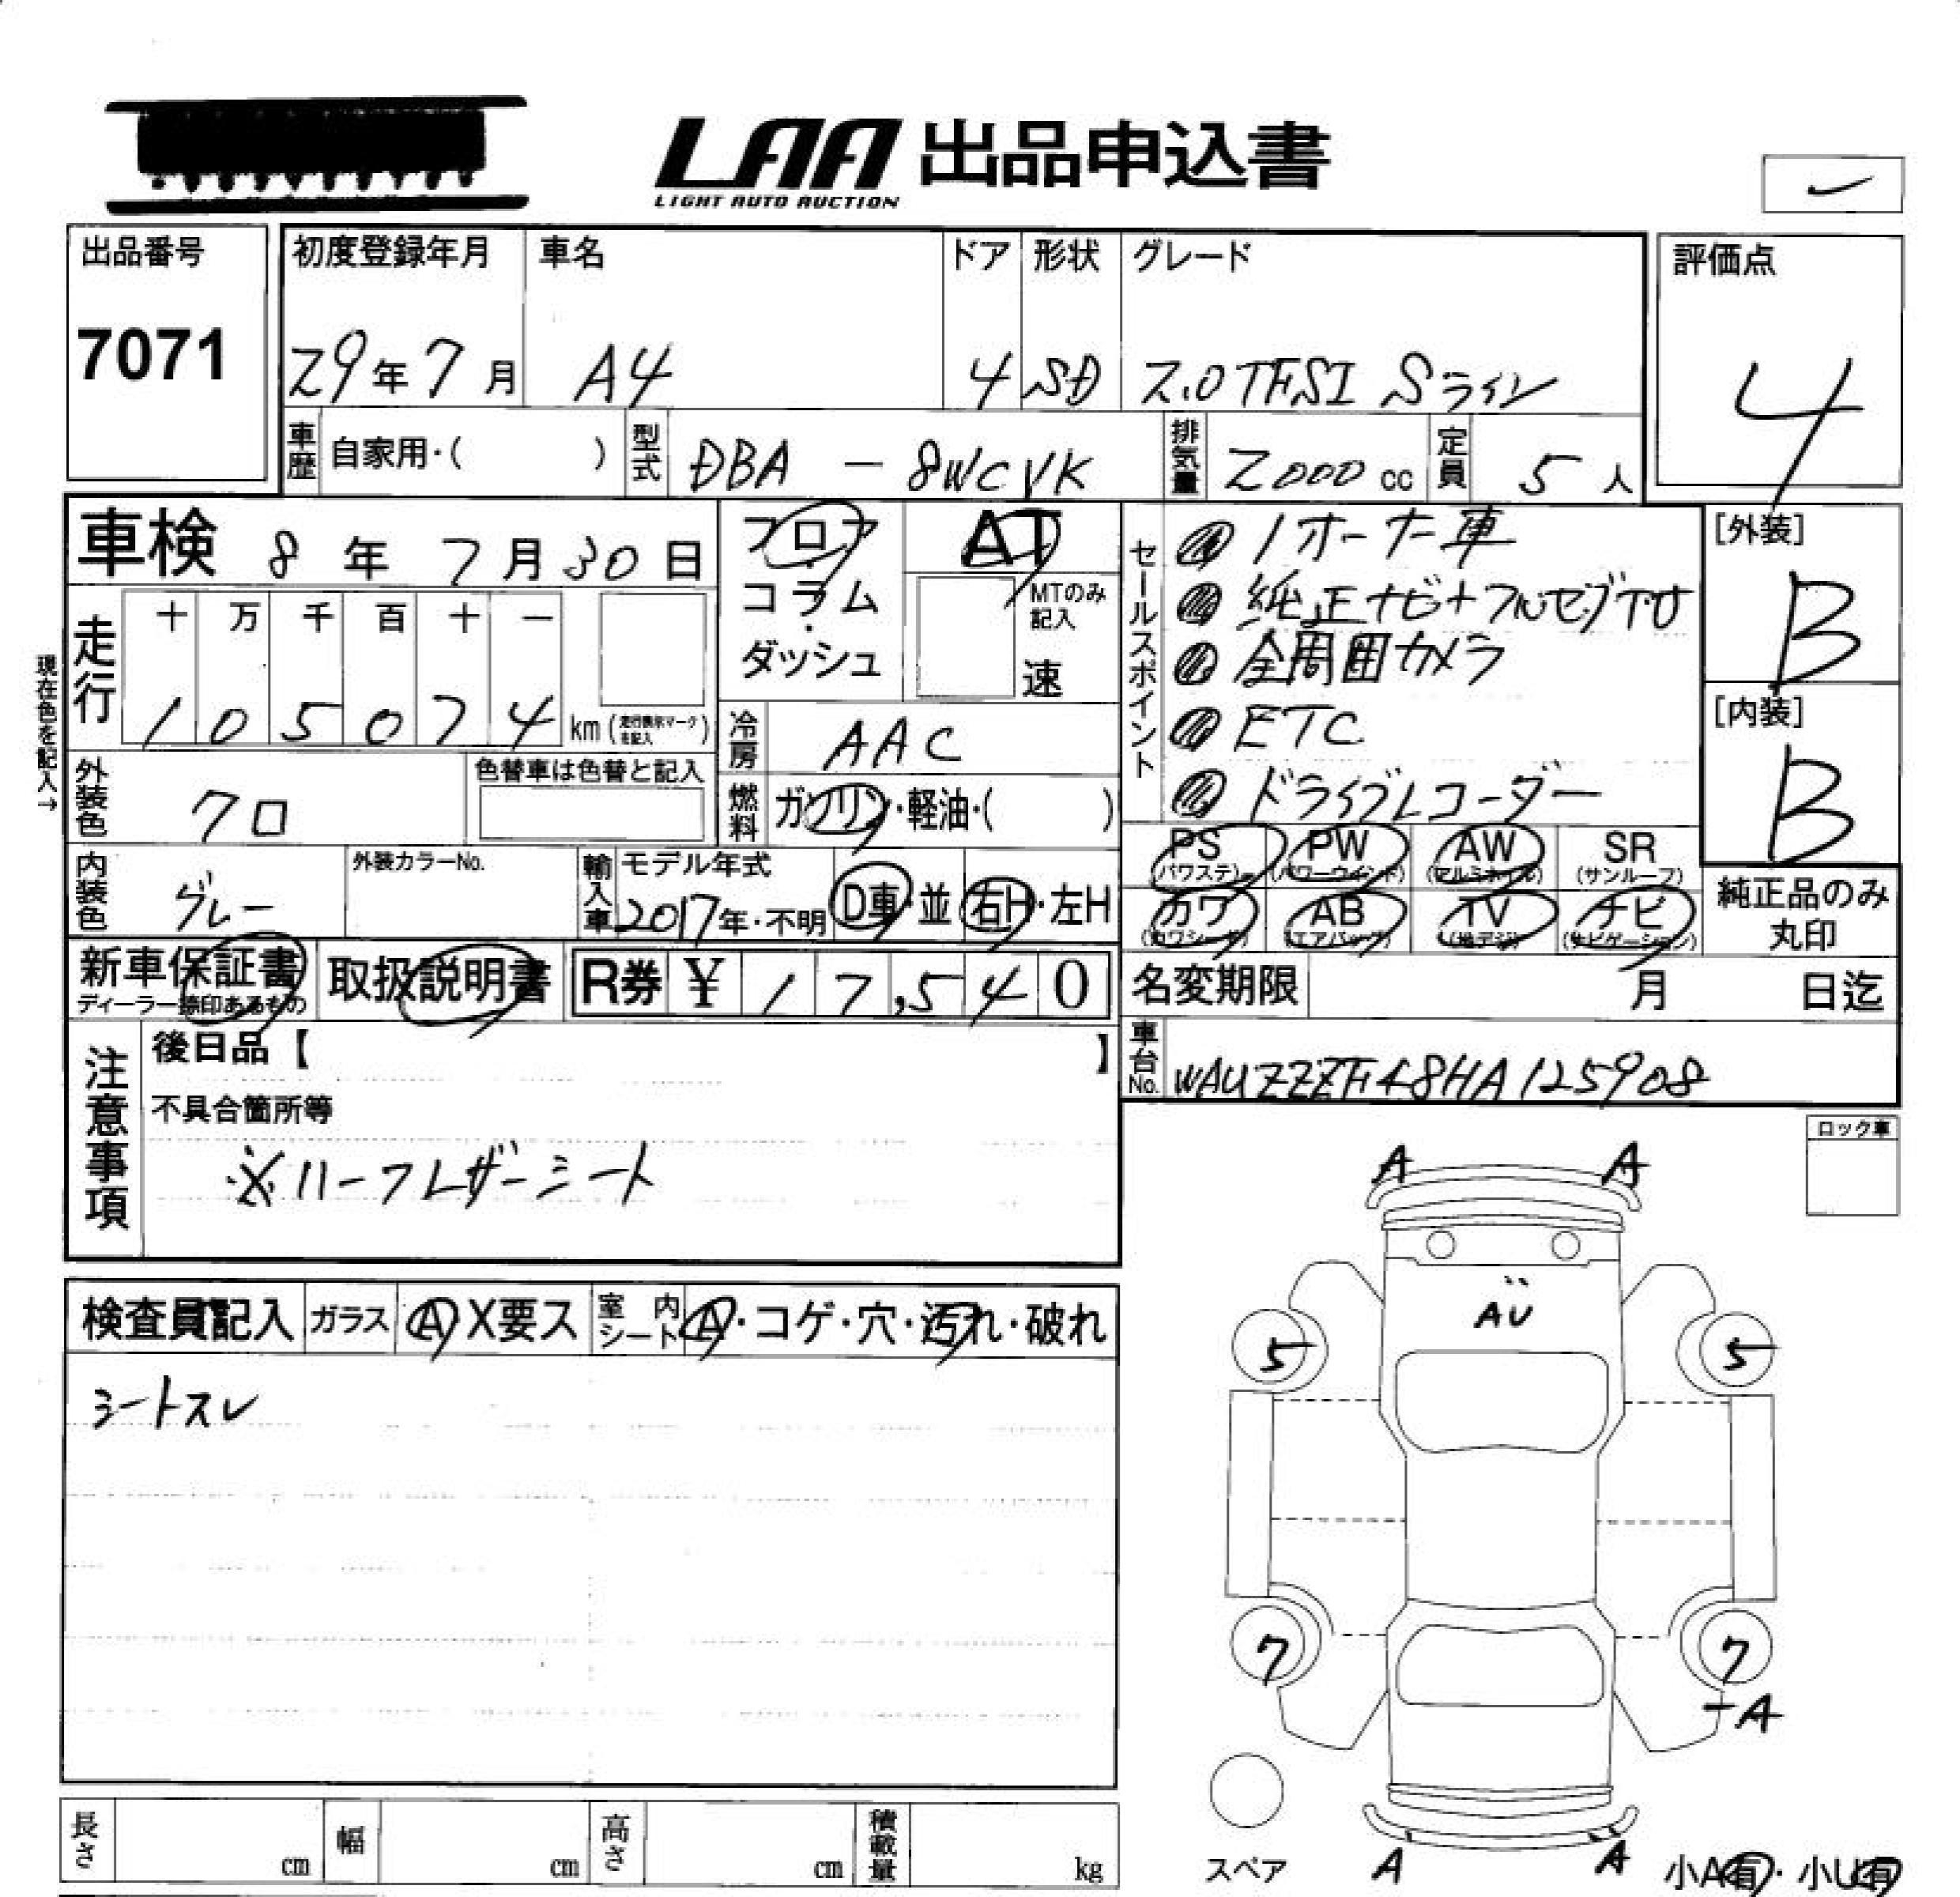 LAA 出品申込書
LIGHT AUTO AUCTION
出品番号
7071
初度登録年月 車名 ドア 形状 グレード
29年7月 A4 4 SD 2.0TFSI Sライン
評価点
4
車歴 自家用・( ) 型式 DBA - 8WCVK 排気量 2000 cc 定員 5 人
車検 8年7月30日
フロア・コラム・ダッシュ
AT
MTのみ記入
速
セールスポイント
1オーナー車
純正ナビ+フルセグTV
全周囲カメラ
ETC
ドライブレコーダー
[外装]
B
[内装]
B
現在色を記入→
走行 十 万 千 百 十 一
1 0 5 0 7 4 km (走行表示マークを記入)
冷房 AAC
外装色 クロ
色替車は色替と記入
燃料 ガソリン・軽油・( )
内装色 グレー
外装カラーNo.
輸入車 モデル年式
2017年・不明 D車・並 右H・左H
PS (パワステ) PW (パワーウインド) AW (アルミホイル) SR (サンルーフ)
カワ (カワシート) AB (エアバッグ) TV (地デジ) ナビ (ナビゲーション)
純正品のみ丸印
新車保証書 ディーラー捺印あるもの
取扱説明書
R券 ¥ 17,540
名変期限 月 日迄
車台No. WAUZZZF48HA125908
注意事項
後日品【 】
不具合箇所等
※ハーフレザーシート
ロック車
検査員記入 ガラス A X要ス 室内シート A・コゲ・穴・汚れ・破れ
シートスレ
A A
AU
5 5
7 7
A
スペア
A A
小A有・小U有
長さ cm 幅 cm 高さ cm 積載量 kg